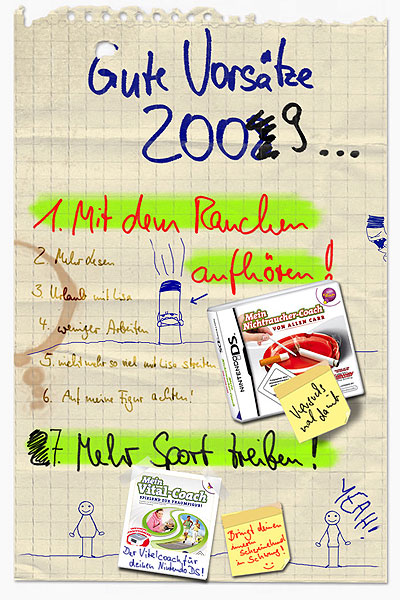 Gute Vorsätze
2009...
1. Mit dem Rauchen
aufhören!
2. Mehr lesen
3. Urlaub mit Lisa
4. weniger Arbeiten
5. nicht mehr so viel mit Lisa streiten
6. Auf meine Figur achten!
NINTENDO DS
Mein
Nichtraucher-Coach
VON ALLEN CARR
Versuchs
mal damit
7. Mehr Sport treiben!
Mein
Vital-Coach
SPIELEND ZUR TRAUMFIGUR!
Der Vitalcoach für
deinen Nintendo DS!
Bringt deinen
innern
Schweinehund
in Schwung!
YEAH!